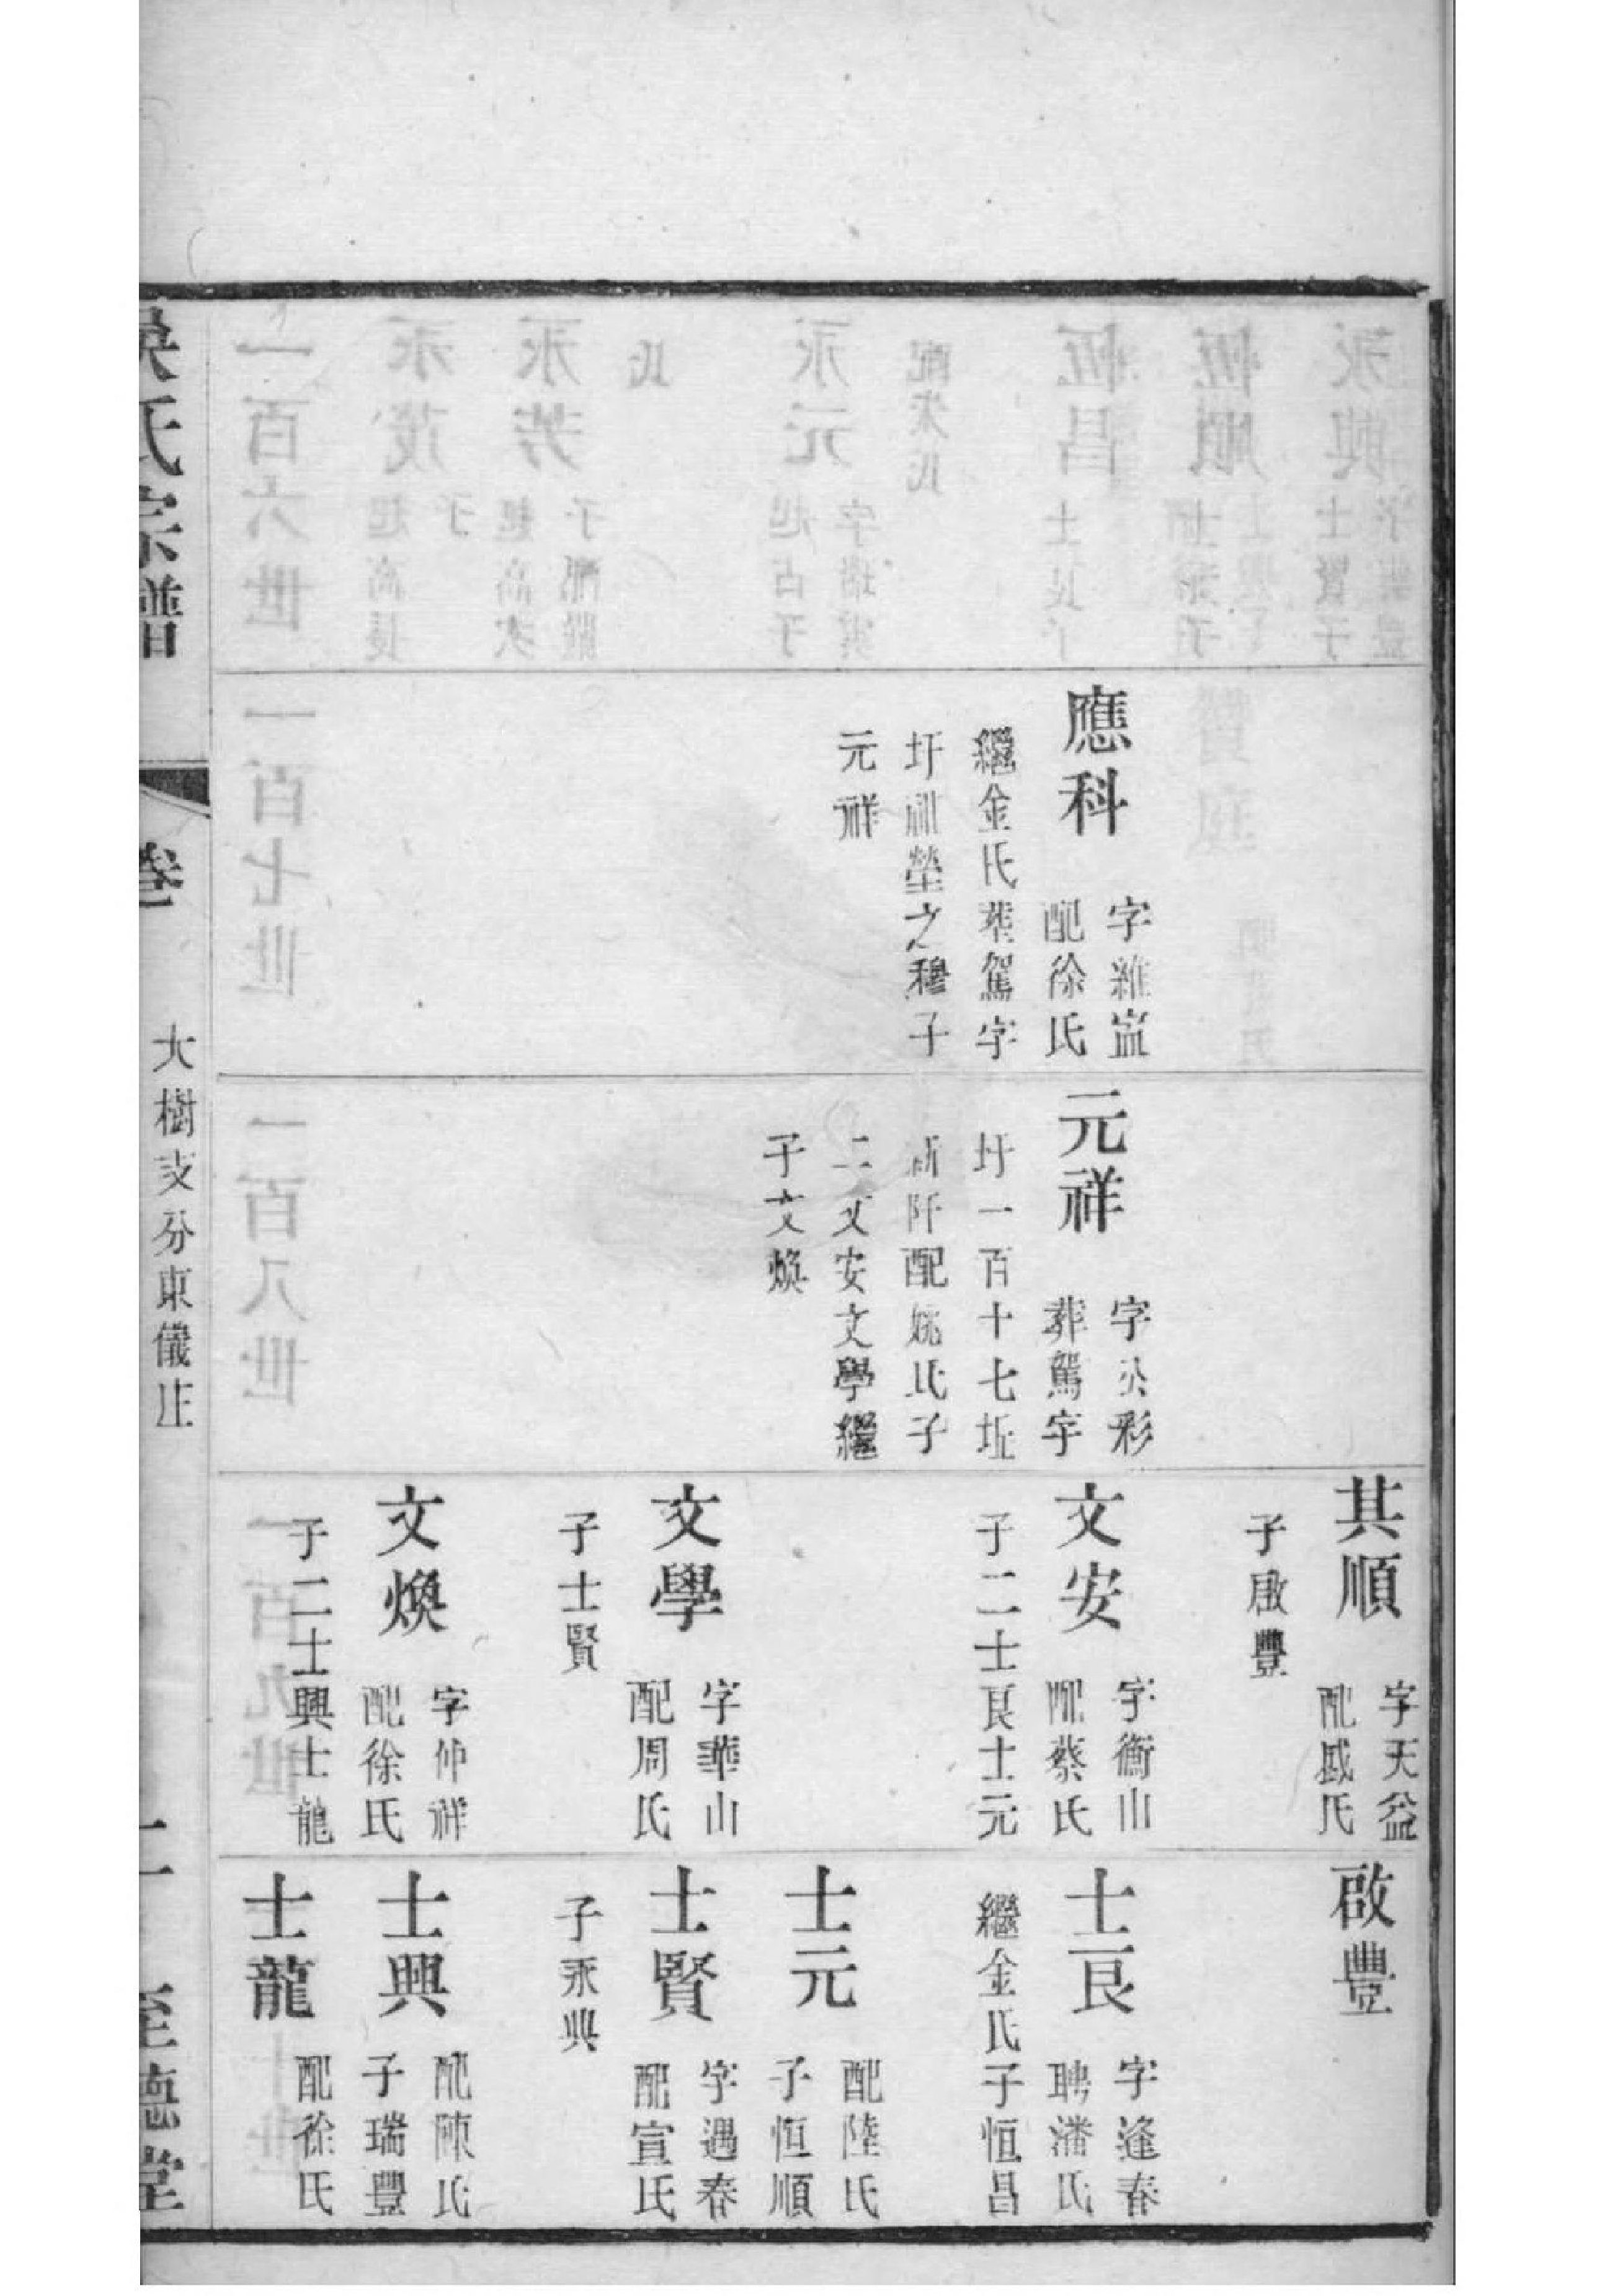 應科
字維嵓
配徐氏
繼金氏葬駕字
圩祖塋之穆子
元祥
元祥
字公彩
葬駕字
圩一百十七坵
新阡配姚氏子
二文安文學繼
子文煥
其順
字天益
配戚氏
子啟豐
文安
字衡山
配蔡氏
子二士良士元
文學
字華山
配周氏
子士賢
文煥
字仲祥
配徐氏
子二士興士龍
啟豐
士良
字逢春
聘潘氏
繼金氏子恒昌
士元
配陸氏
子恒順
士賢
字遇春
配宣氏
子永興
士興
配陳氏
子瑞豐
士龍
配徐氏
吳氏宗譜
卷
大樹支分東儀庄
至德堂